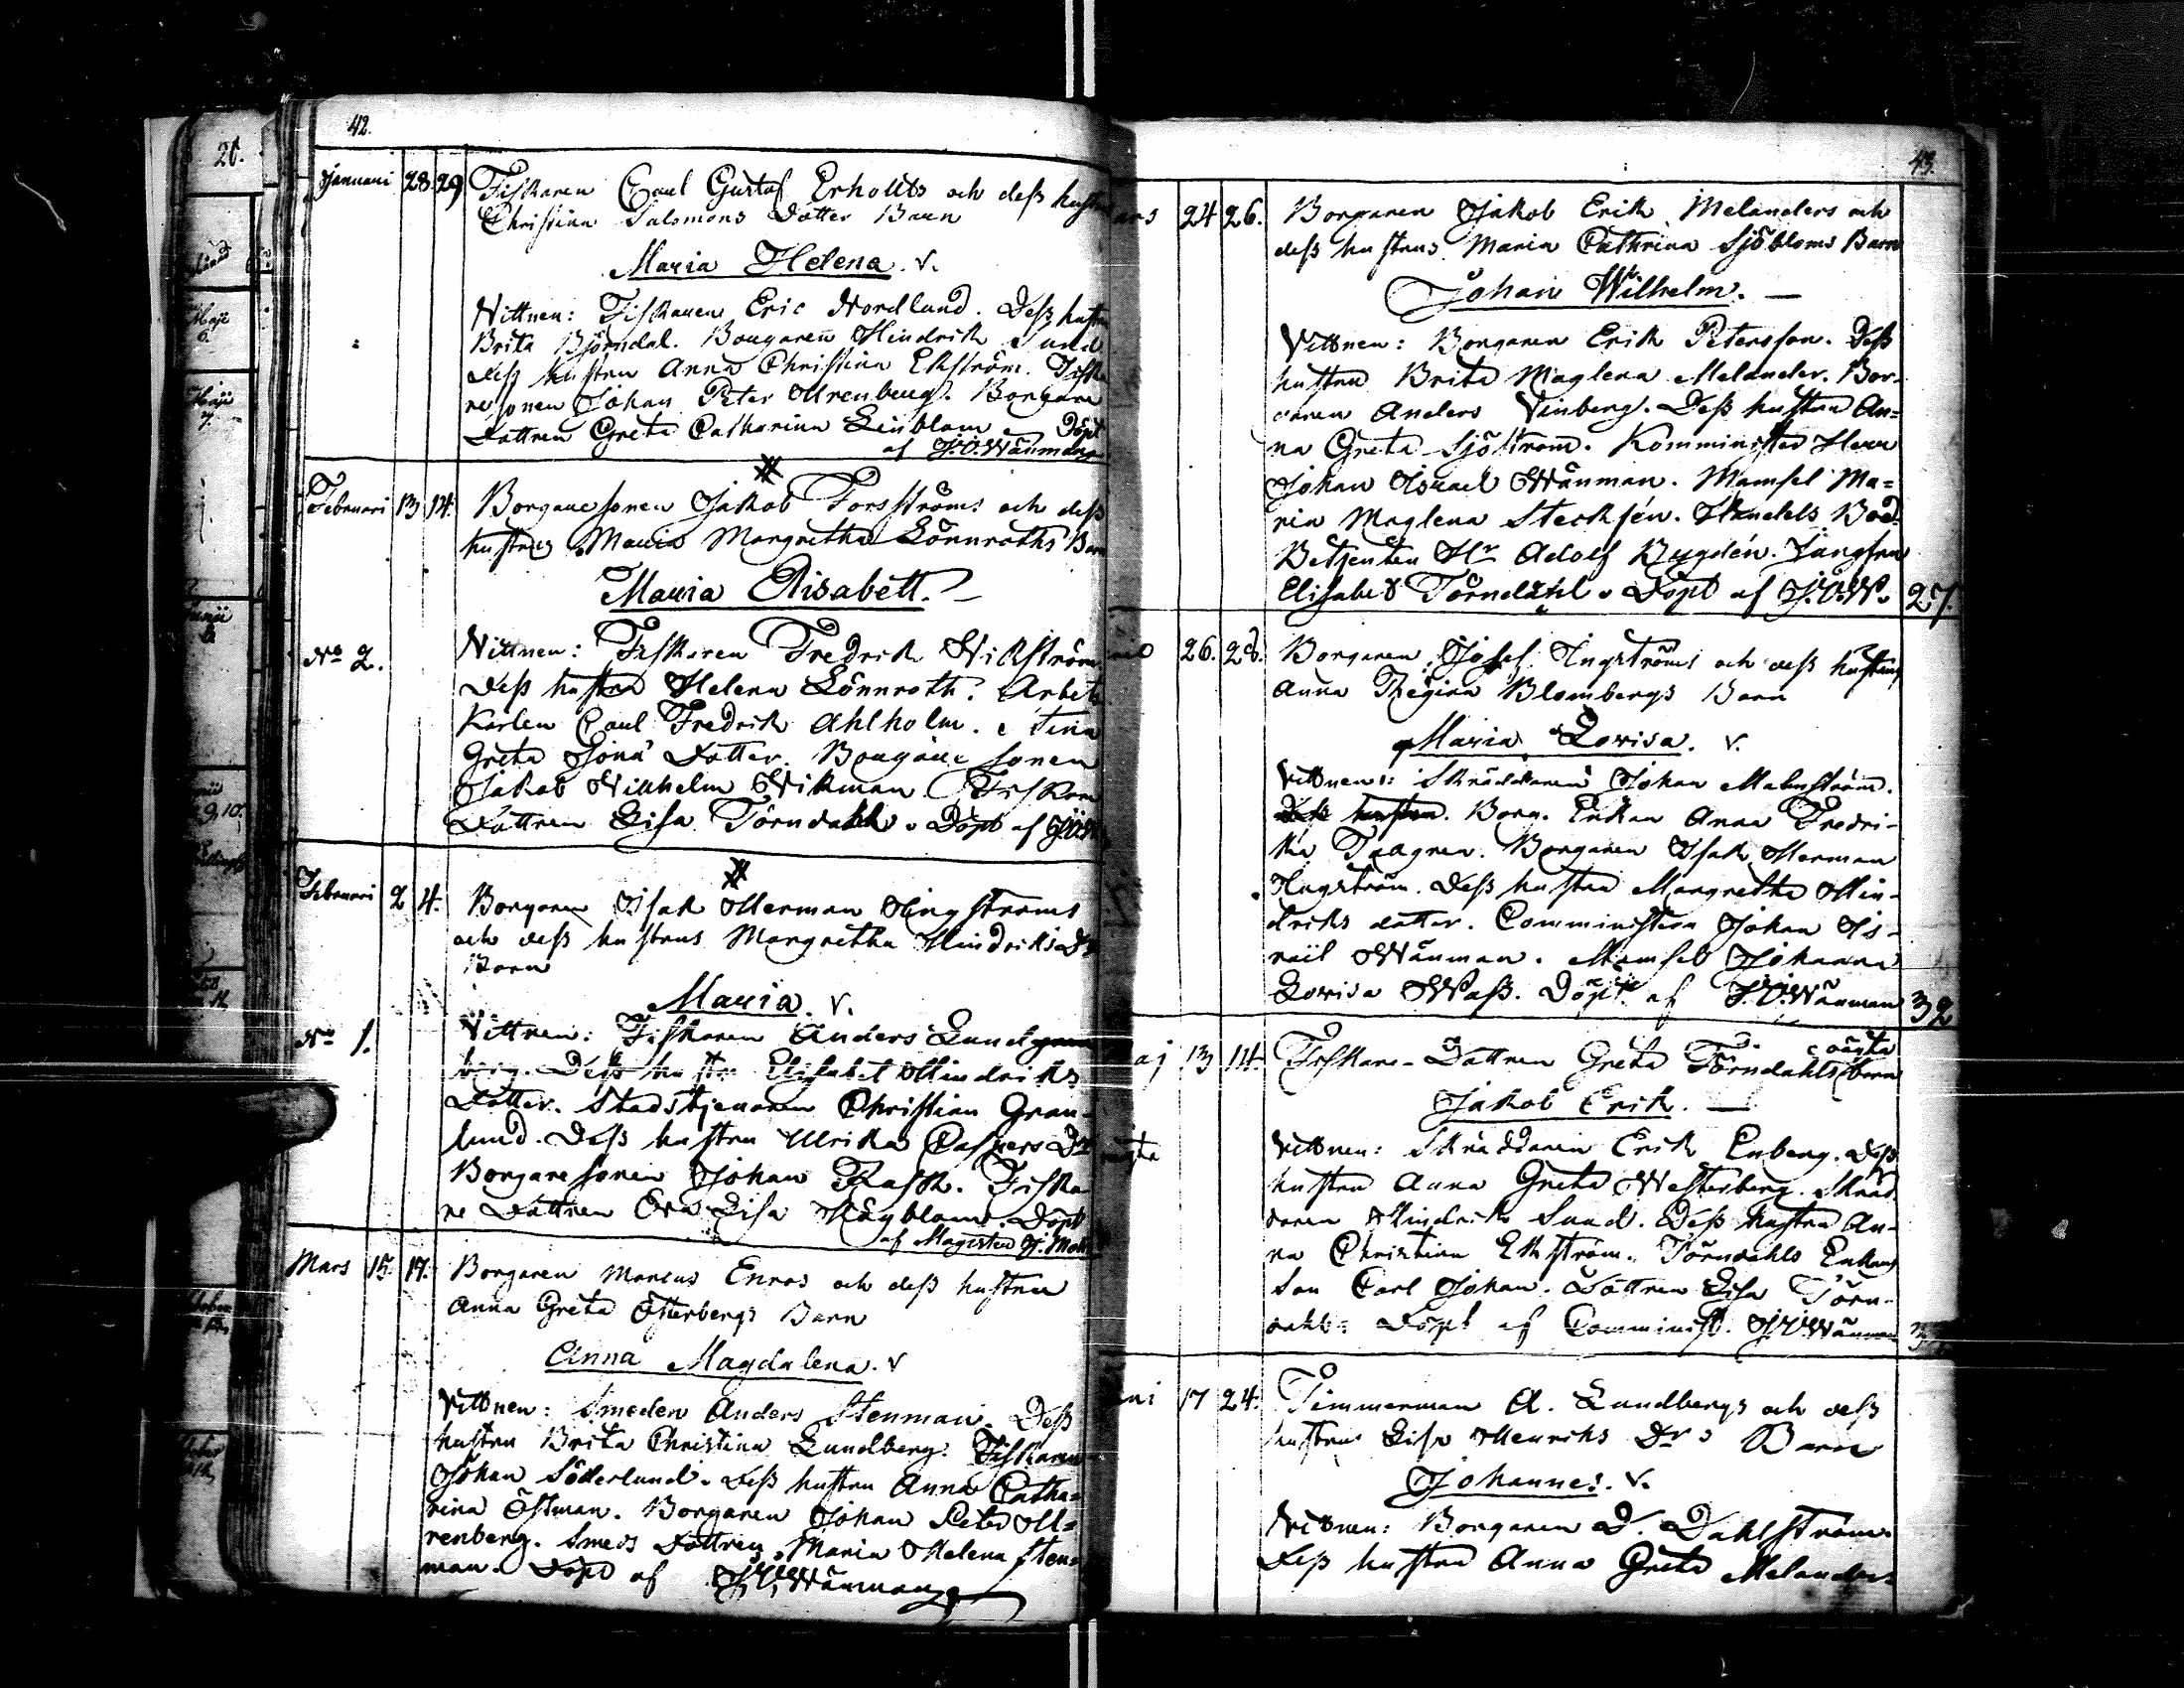 42.
Januari 28 29 Fiskaren Carl Gustaf Erholtts och dess hustrus
Christina Salomons Dotter Barn
Maria Helena. v.
Vittnen: Fiskaren Eric Nordlund. Dess hustru
Brita Björndal. Borgaren Hindrik Sund
dess hustru Anna Christina Ekström. Fiska
resonen Johan Peter Ahrenberg. Borgare
dottren Greta Catharina Linblom Döpt
af J.I. Wänman
Februari 13 14. Borgaresonen Jakob Forsströms och dess
hustrus Maria Margretha Lönnroths Barn
Maria Elisabett. –
No 2. Vittnen: Fiskaren Fredrik Wikström
dess hustru Helena Lönnroth. Arbets
Karlen Carl Fredrik Ahlholm. Stina
Greta Jona Dotter. Borgare sonen
Jakob Wilhelm Wikman Fiskare
Dottren Lisa Törndahl. Döpt af
Februari 2 4. Borgaren Isak Herman Hingströms
och dess hustrus Margretha Hindriks Dr
Barn
Maria. v.
No 1. Vittnen: Fiskaren Anders Lund
berg. Dess hustru Elisabet Hindriks
Dotter. Stadstjenaren Christian Gran-
lund. Dess hustru Ulrika Caspers Dr
Borgaresonen Johan Rask. Fiska-
re Dottren Eva Lisa Högblom. Döpt
af Magister J.
Mars 15. 17. Borgaren Marcus Enros och dess hustru
Anna Greta Österbergs Barn
Anna Magdalena. v
Vittnen: Smeden Anders Stenman. Dess
hustru Brita Christina Lundberg. Fiskaren
Johan Söderlund. Dess hustru Anna Catha=
rina Östman. Borgaren Johan Peter Ah=
renberg. Smeds Dottren Maria Helena Sten=
man. Döpt af J.I. Wänman
43.
ars 24 26. Borgaren Jakob Erik Melanders och
dess hustrus Maria Cathrina Sjöbloms Barn
Johan Wilhelm. –
Vittnen: Borgaren Erik Petersson. Dess
hustru Brita Maglena Melander. Bor-
garen Anders Vinberg. Dess hustru An=
na Greta Sjöström. Komminister Herr
Johan Israel Wänman. Mamsel Ma=
ria Maglena Stecksén. Handels Bod
Betjenten Hr Adolf Rygdén. Jungfru
Elisabet Törndahl. Döpt af J.I.W. 27.
26. 28. Borgaren Josef Ingströms och dess hustrus
Anna Regina Blombergs Barn
Maria Lovisa. v.
Vittnen: Skräddaren Johan Malmström.
Dess hustru. Borg. Enkan Anna Fredri-
ka Borgaren Isak Herman
Hngström. Dess hustru Margretha Hin-
driks dotter. Comministern Johan Is-
rail Wänman. Mamsell Johanna
Lovisa Wass. Döpt af J.I. Wänman 32
aj 13 14. Fiskare-Dottren Greta Törndahls oägta barn
Jakob Erik. –
Vittnen: Skräddaren Erik Enberg. Dess
hustru Anna Greta Westerberg. Skräd
daren Hindrik Sund. Dess hustru An-
na Christina Ekström. Törndahls Enkans
Son Carl Johan. Dottren Lisa Törn-
dahl. Döpt af Comminist. J.I. Wänman
ni 17 24. Timmerman A. Lundbergs och dess
hustrus Lisa Henriks Dr s Barn
Johannes. v.
Vittnen: Borgaren D. Dahlström.
Dess hustru Anna Greta Melander=